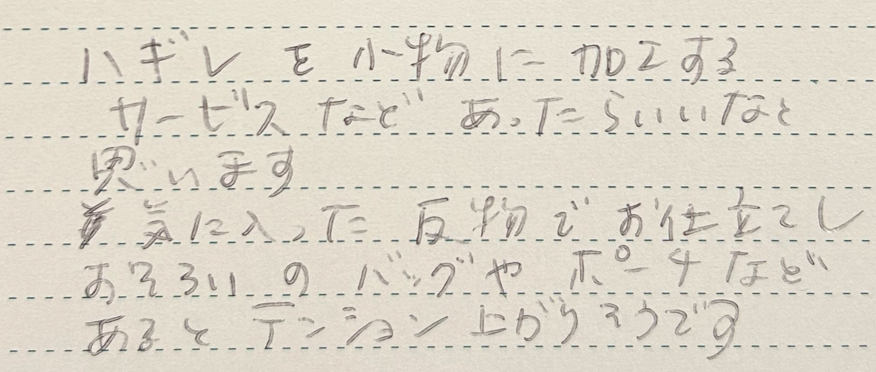 ハギレを小物に加工する
サービスなどあったらいいなと
思います
気に入った反物でお仕立てし
おそろいのバッグやポーチなど
あるとテンション上がりそうです